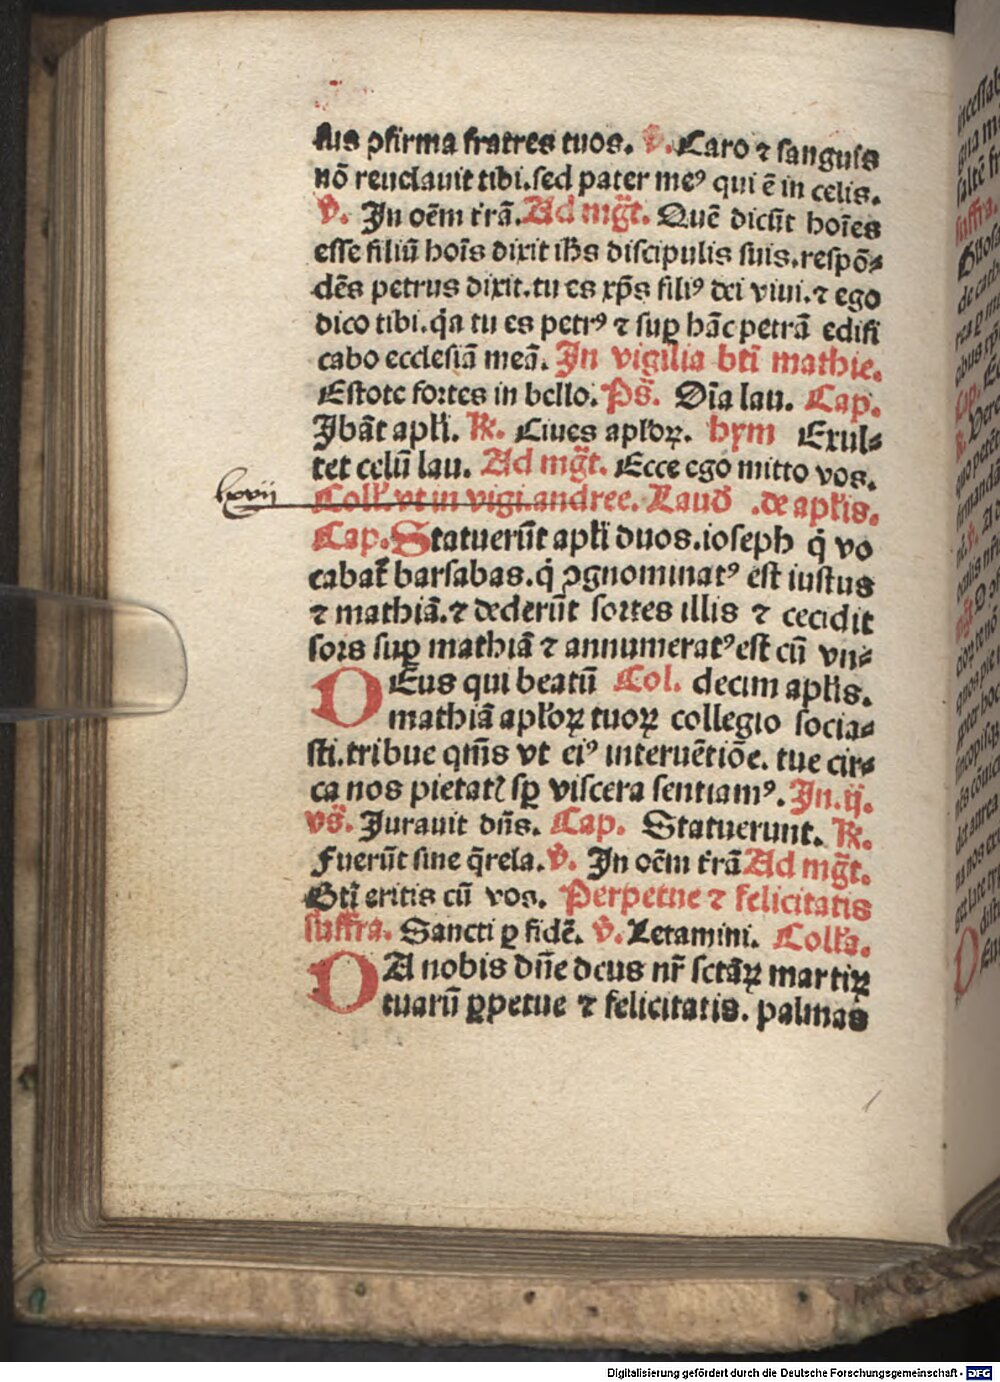 sus ꝯfirma fratres tuos. V̷. Caro ⁊ sanguis
nō reuelauit tibi. sed pater meꝰ qui ē in celis.
V̷. In oēm t̄rā. Ad mg̅t. Quē dicūt hoīes
esse filiū hoīs dixit ihs̄ discipulis suis. respō⸗
dēs petrus dixit. tu es xp̄s filiꝰ dei viui. ⁊ ego
dico tibi. q̄a tu es petrꝰ ⁊ suꝑ hāc petrā edifi
cabo ecclesiā meā. In vigilia bt̄i mathie.
Estote fortes in bello. Ps̄. Dīa lau. Cap.
Ibāt apl̄i. R̷. Ciues apl̄oꝝ. hym Exul⸗
tet celū lau. Ad mg̅t. Ecce ego mitto vos.
lxvij
Coll̄. vt in vigi. andree. Laud̄ .de apl̄is.
Cap. Statuerūt apl̄i duos. ioseph q̇ vo
cabat̄ barsabas. q̇ ꝯgnominatꝰ est iustus
⁊ mathiā. ⁊ dederūt sortes illis ⁊ cecidit
sors suꝑ mathiā ⁊ annumeratꝰ est cū vn⸗
DEus qui beatū Col. decim apl̄is.
mathiā apl̄oꝝ tuoꝝ collegio socia⸗
sti. tribue qm̄s vt eiꝰ interuētiōe. tue cir⸗
ca nos pietatꝭ sꝑ viscera sentiamꝰ. In .ij.
vs̄. Iurauit dn̄s. Cap. Statuerunt. R̷.
Fuerūt sine q̄rela. V̷. In oēm t̄rā Ad mg̅t.
Bt̄i eritis cū vos. Perpetue ⁊ felicitatis
suffra. Sancti ꝑ fidē. V̷. Letamini. Coll̄a.
DA nobis dn̄e deus nr̄ sctāꝝ martiꝝ
tuarū ꝑpetue ⁊ felicitatis. palmas
Digitalisierung gefördert durch die Deutsche Forschungsgemeinschaft - DFG